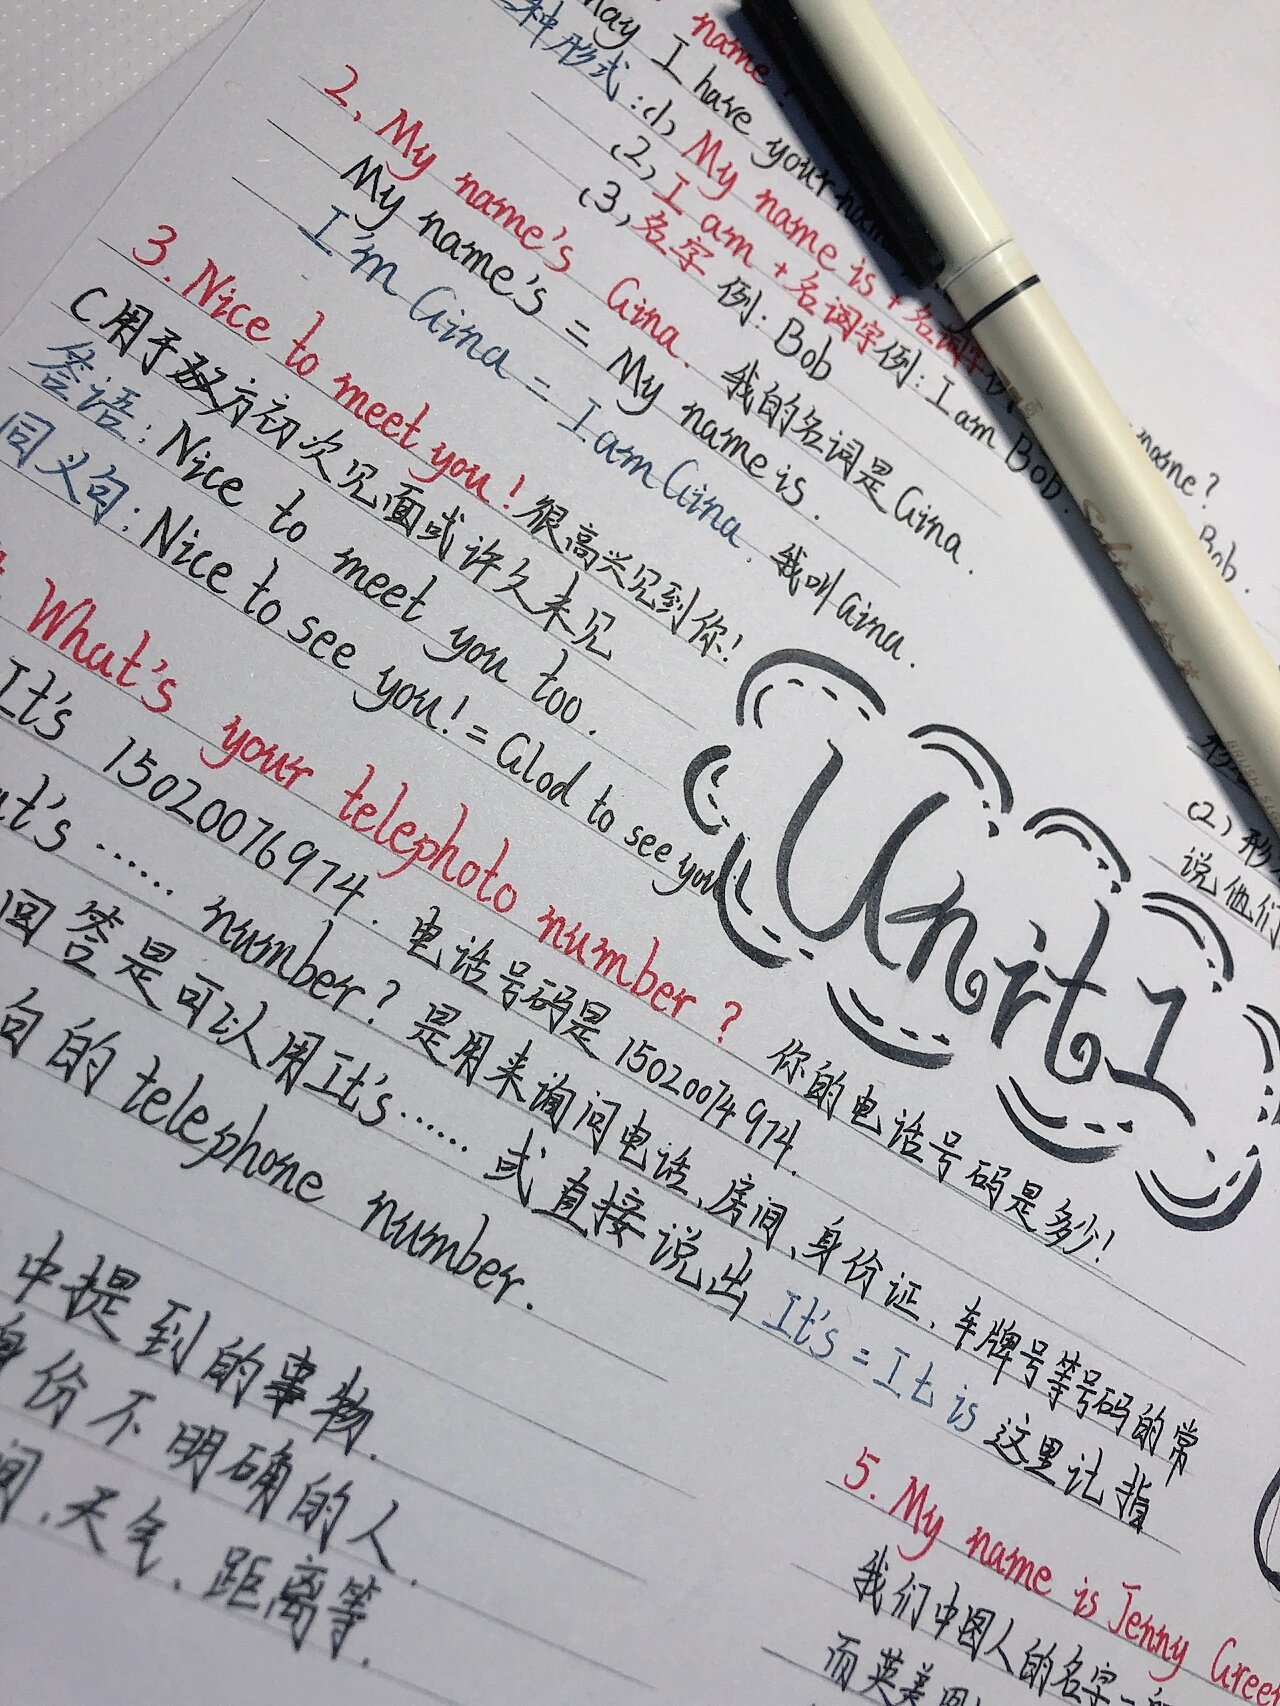 name?
may I have your name
种形式:(1) My name is + 名词字
(2) I am + 名词字 例: I am Bob.
(3) 名字 例: Bob
2. My name's Gina. 我的名词是 Gina.
My name's = My name is.
I'm Gina = I am Gina. 我叫 Gina.
3. Nice to meet you! 很高兴见到你!
(用于双方初次见面或许久未见
答语: Nice to meet you too.
同义句: Nice to see you! = Glod to see you!
What's your telephoto number? 你的电话号码是多少!
It's 15020076974. 电话号码是 15020074974.
at's ...... number? 是用来询问电话、房间、身份证、车牌号等号码的常
回答是可以用It's ...... 或直接说出 It's = It is 这里让指
句的 telephone number.
中提到的事物.
身份不明确的人.
间.天气.距离等.
Unit1
5. My name is Jenny Green
我们中国人的名字一
而英美国
name?
Bob.
(2) 形
说他们